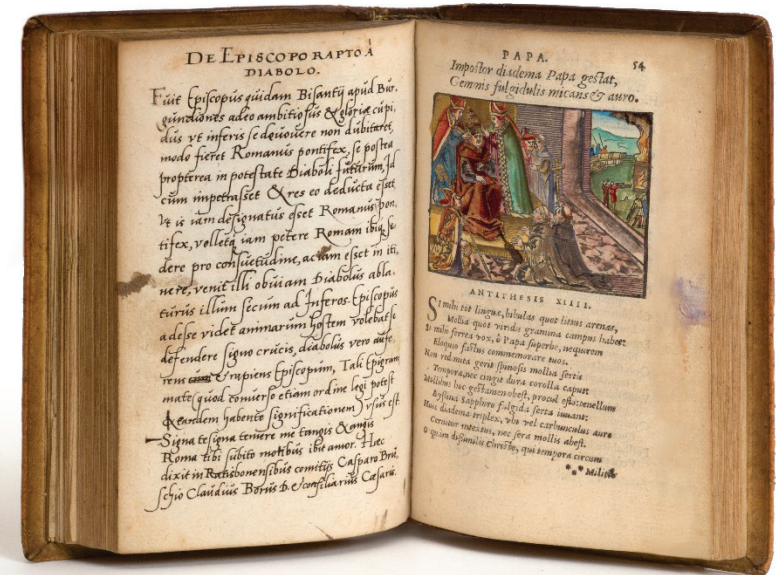 DE EPISCOPO RAPTO A
DIABOLO.
Fuit Episcopus quidam Bisantij apud Bur,
gundiones adeo ambitiosus & gloriæ cupi,
dus vt inferis se deuouere non dubitaret,
modo fieret Romanus pontifex, se postea
propterea in potestate Diaboli futurum, Id
cum impetrasset & res eo deducta esset
Vt is iam designatus esset Romanus pon,
tifex, velletq iam petere Romam ibiq se,
dere pro consuetudine, ac iam esset in iti,
nere, venit illi obuiam Diabolus abla,
turus illum secum ad Inferos. Episcopus
adesse videt animarum hostem volebat se
defendere signo crucis, diabolus vero aufe,
rens & rapiens Episcopum, Tali Epigram,
mate (quod conuerso etiam ordine legi potest
& eandem habente significationem) vsus est
Signa te signa temere me tangis & angis
Roma tibi subito motibus ibit amor. Hæc
dixit in Ratisbonensibus comitijs Casparo Bru,
schio Claudius Borus D. & consiliarius Cæsaris.
PAPA. 54
Impostor diadema Papa gestat,
Gemmis fulgidulis micans & auro.
ANTITHESIS XIIII.
SI mihi tot linguæ, bibulas quot litus arenas,
Mollia quot viridis gramina campus habet:
Si mihi ferrea vox, ô Papa superbe, nequirem
Eloquio fastus commemorare tuos.
Non redimita gerit spinosis mollia sertis
Tempora, nec cingit dura corolla caput
Mollibus hic gestamen obest, procul esto: tenellum
Byssina Sapphiro fulgida serta iuuant:
Huic diadema triplex, vbi vel carbunculus auro
Cernitur intextus, nec sera mollis abest.
O quàm dissimilis Christo, qui tempora circum
*** Militis